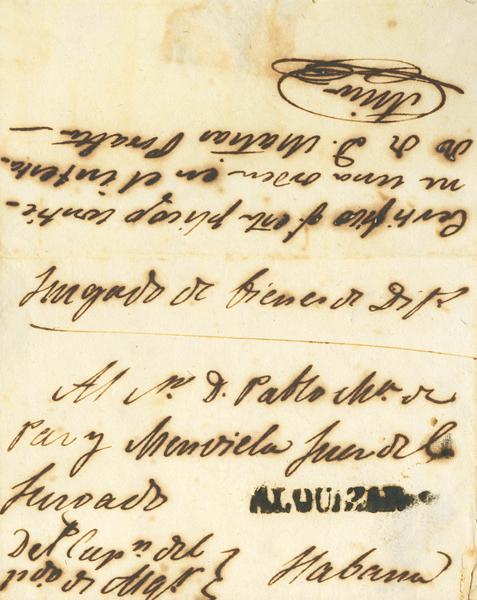 Certifico qe. este pliego contie-
ne una orden en el intesta-
do de D. Matias
Juzgado de bienes de Difs.
Al Sr. D. Pablo Ma. de
Paz y Menviela Juez del
Juzgado
ALQUIZAR
Del Capn. del
pdo. de Alqr.
Habana